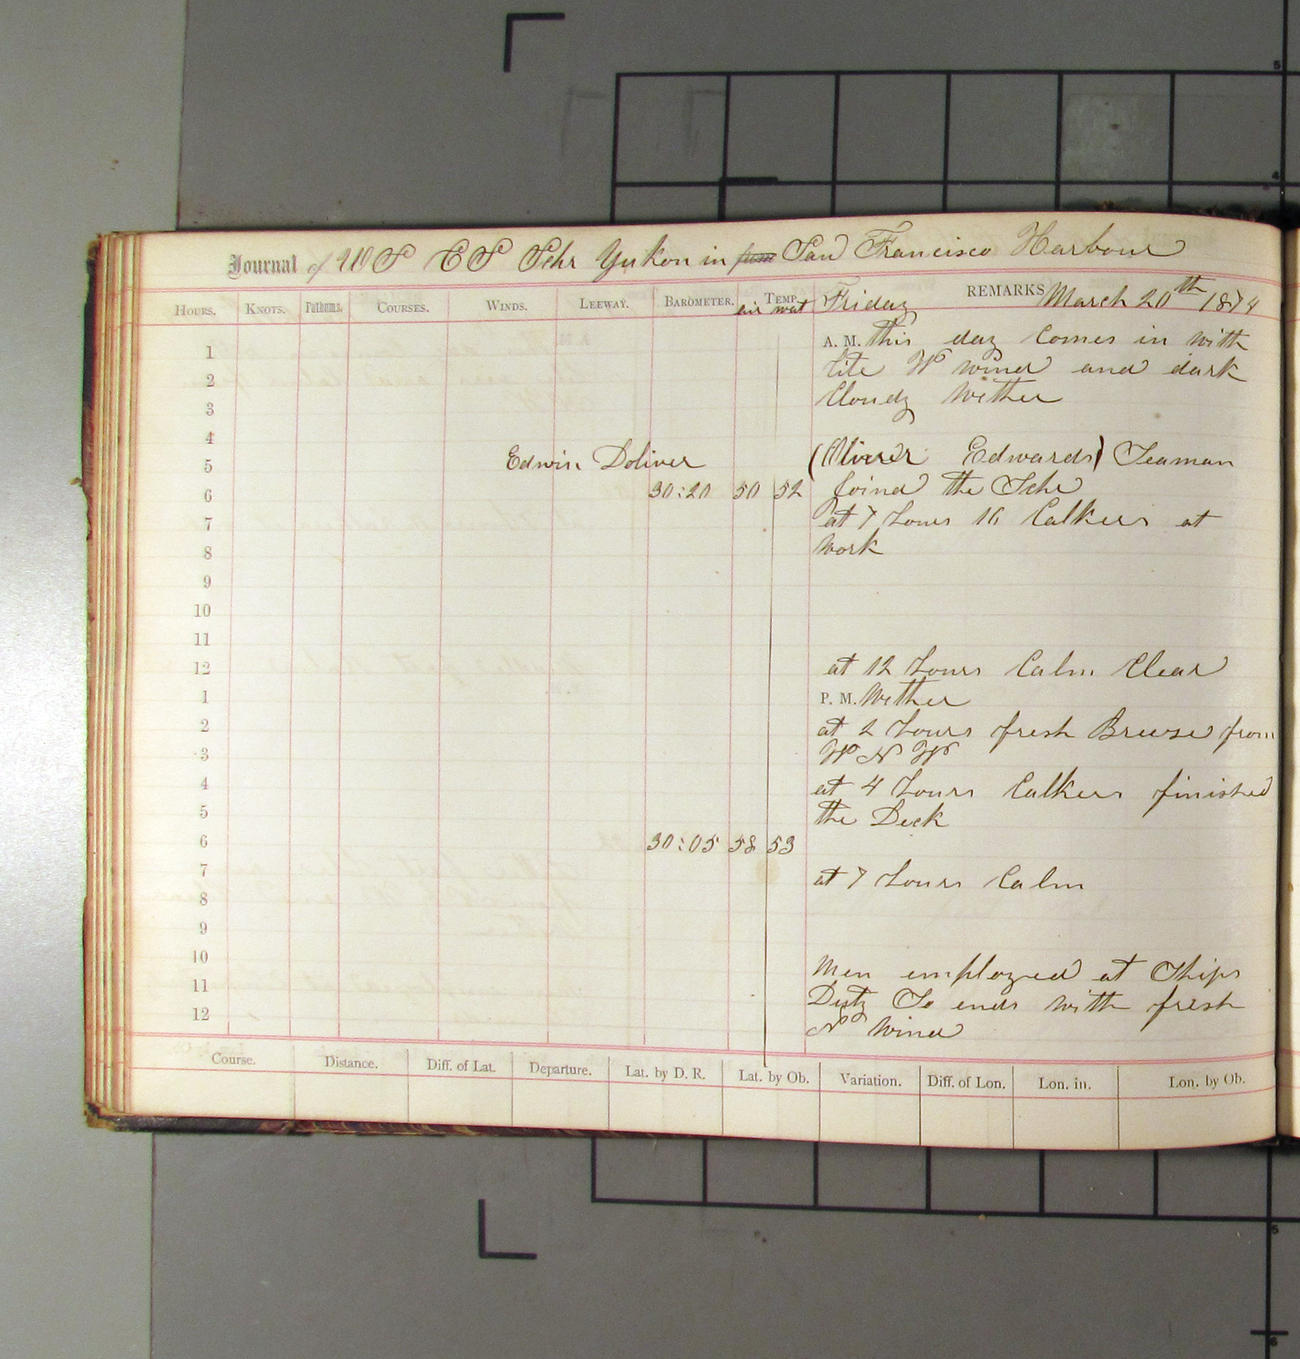 Journal of U S C S Schr Yukon in from San Francisco Harbour
HOURS. KNOTS. Fathoms. COURSES. WINDS. LEEWAY. BAROMETER. TEMP. REMARKS
air wat Friday March 20th 1874
1 A. M. this day Comes in with
2 lite W wind and dark
3 Cloudy Wether
4
5 Edwin Doliver (Oliver Edwards) Seaman
6 30:20 50 52 joind the Schr
7 at 7 hours 16 Calkers at
8 Work
9
10
11
12 at 12 hours Calm Clear
1 P. M. Wether
2 at 2 hours fresh Breeze from
3 W N W
4 at 4 hours Calkers finished
5 the Deck
6 30:05 58 53
7 at 7 hours Calm
8
9
10 Men employed at Ships
11 Duty So ends with fresh
12 N Wind
Course. Distance. Diff. of Lat. Departure. Lat. by D. R. Lat. by Ob. Variation. Diff. of Lon. Lon. in. Lon. by Ob.
5
4
5
6